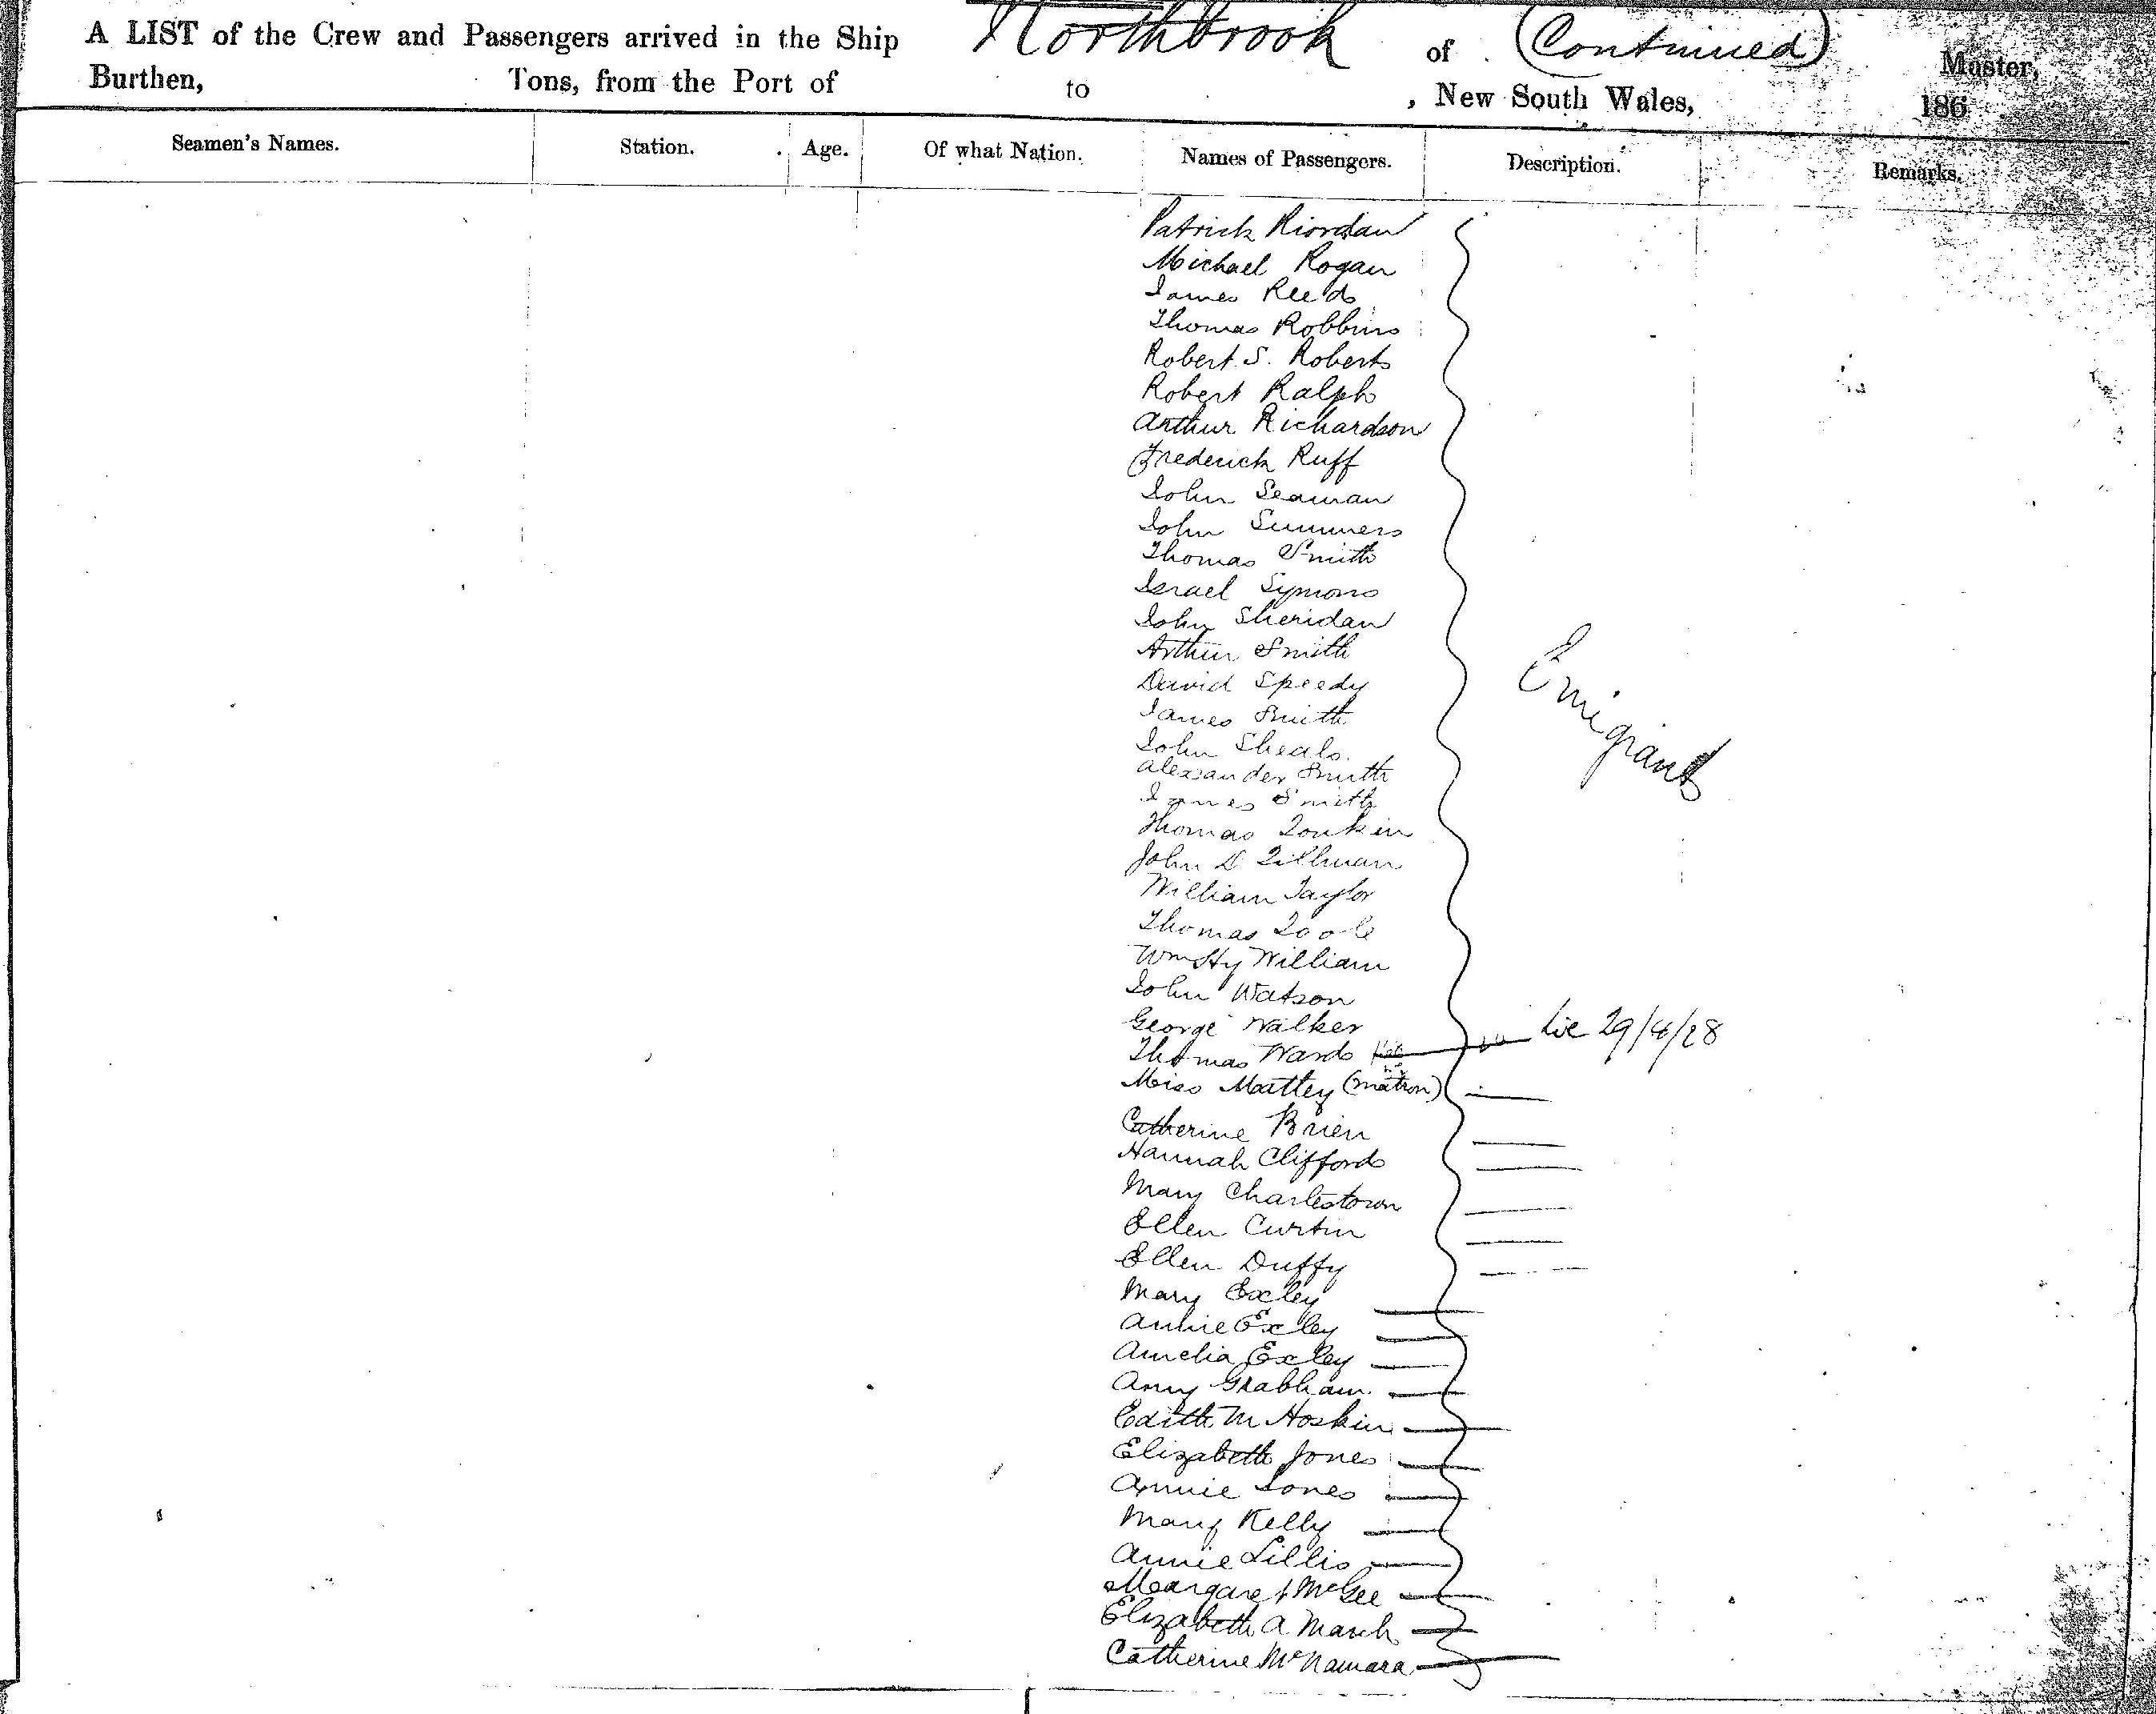 A LIST of the Crew and Passengers arrived in the Ship Northbrook of (Continued) Master,
Burthen, Tons, from the Port of to , New South Wales, 186
Seamen's Names. Station. Age. Of what Nation. Names of Passengers. Description. Remarks.
Patrick Riordan
Michael Rogan
James Reed
Thomas Robbins
Robert S. Roberts
Robert Ralph
Arthur Richardson
Frederick Ruff
John Seaman
John Summers
Thomas Smith
Israel Symons
John Sheridan
Arthur Smith
Emigrants
David Speedy
James Smith
John Sheals.
Alexander Smith
James Smith
Thomas Tonkin
John D Tillman
William Taylor
Thomas Toole
Wm Hy William
John Watson
George Walker
Thomas Ward 29/4/28
Miss Mattey (matron)
Catherine Brien
Hannah Clifford
Mary Charlestown
Ellen Curtin
Ellen Duffy
Mary Exley
Annie Exley
Amelia Exley
Amy Grabham.
Edith M Hoskin
Elizabeth Jones
Annie Jones
Mary Kelly
Annie Lillis
Margaret McGee
Elizabeth A March
Catherine McNamara